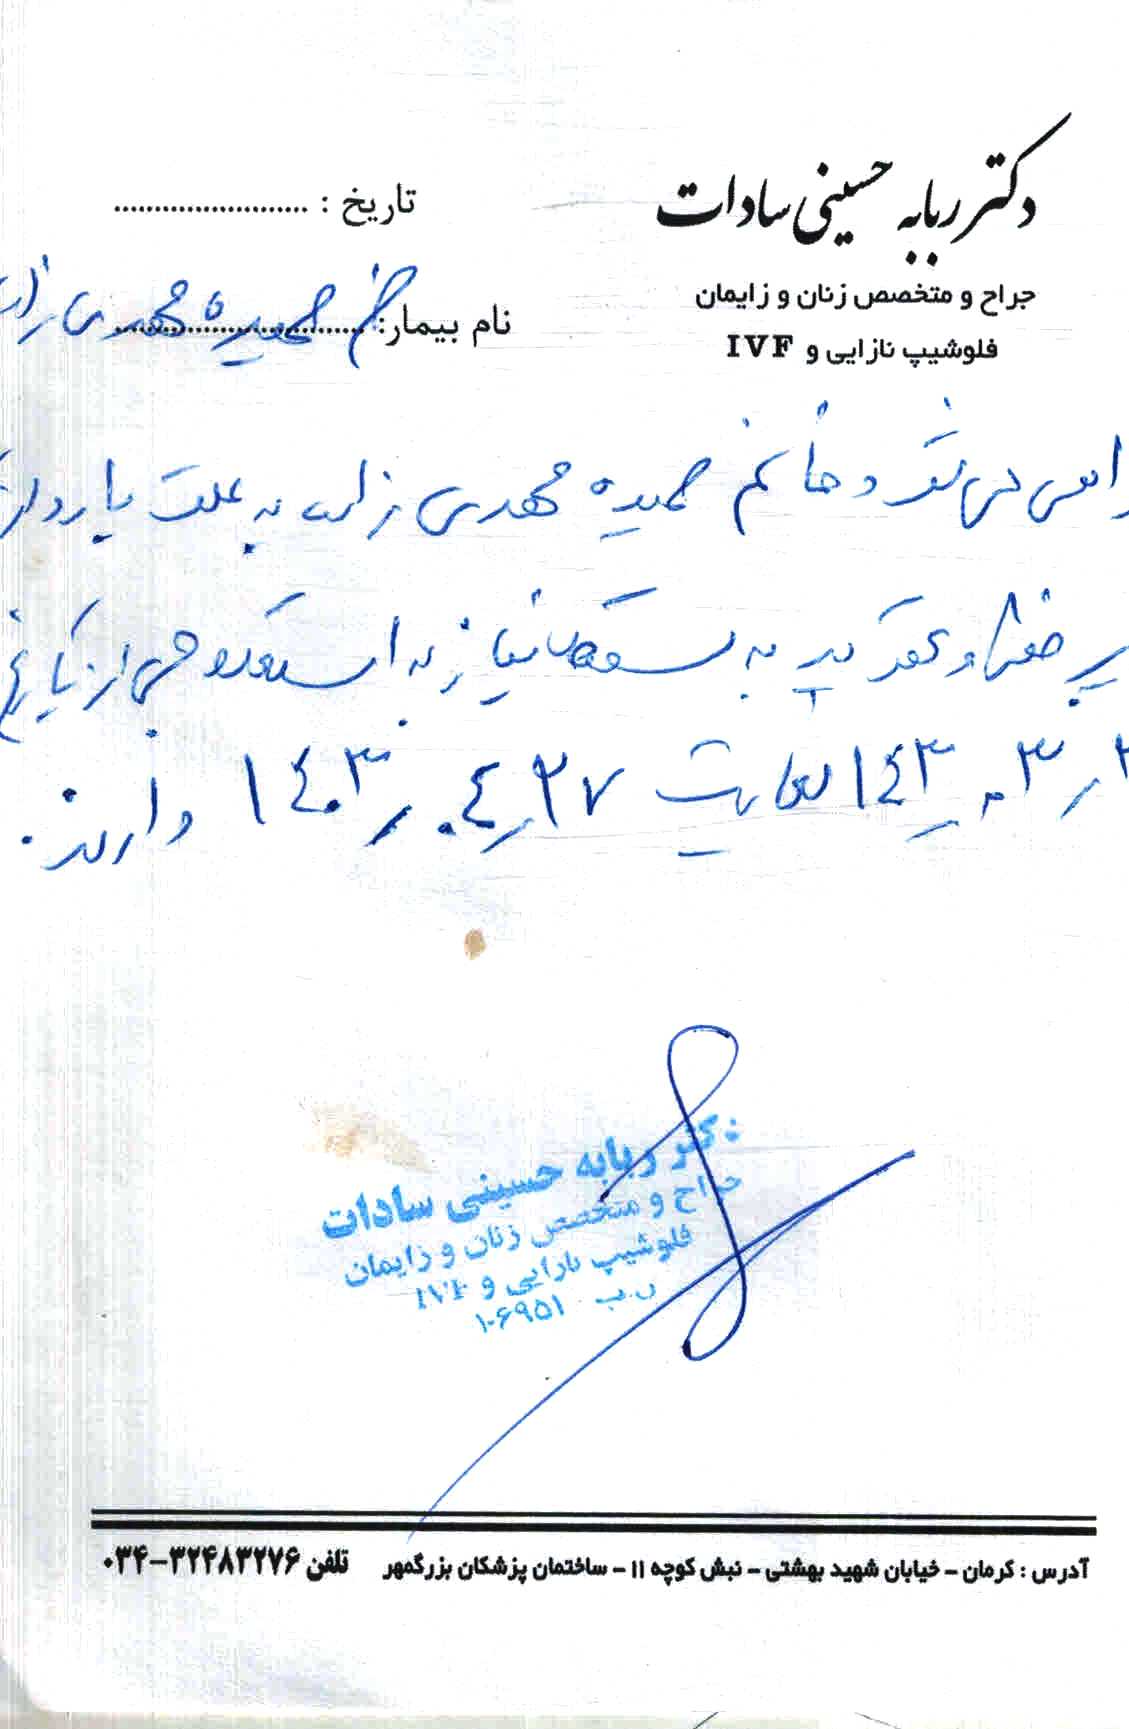 دکتر ربابه حسینی سادات
جراح و متخصص زنان و زایمان
فلوشیپ نازایی و IVF
تاریخ : ........................
نام بیمار: خانم حمیده مهدی زاده
گواهی می شود خانم حمیده مهدی زاده به علت بارداری
پر خطر و تهدید به سقط نیاز به استعلاجی از تاریخ
۱۴۰۳ لغایت ۱۴۰۳/۰۴/۲۷ دارند.
دکتر ربابه حسینی سادات
جراح و متخصص زنان و زایمان
فلوشیپ نازایی و IVF
ن.پ ۱۰۶۹۵۱
آدرس : کرمان – خیابان شهید بهشتی – نبش کوچه ۱۱ – ساختمان پزشکان بزرگمهر تلفن ۳۲۴۸۳۲۷۶–۰۳۴